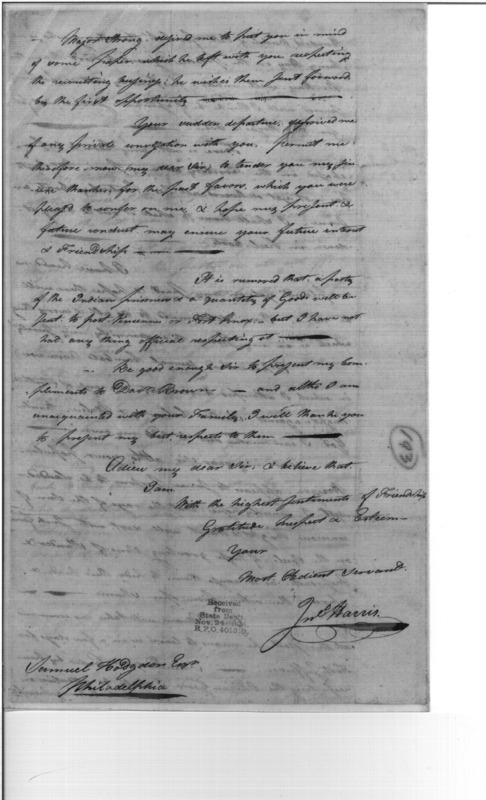 Major Strong desired me to put you in mind
of some paper which he left with you respecting
the recruiting business; he wishes them sent forward
by the first opportunity
Your sudden departure, deprived me
of any private with you, permit me
therefore now my dear Sir, to tender you my sin-
cere thanks, for the past favors, which you were
pleas'd to confer on me, & hope my present &
future conduct may ensure your future interest
& Friendship
It is rumored that a party
of the Indian prisoners & a quantity of Goods will be
sent to post Vincennes or Fort Knox, but I have not
had any thing official respecting it
Be good enough Sir to present my com-
pliments to Brown and altho I am
unacquainted with your Family, I will thank you
to present my best respects to them
Adieu my dear Sir, & believe that
I am
With the highest sentiments of Friendship
Gratitude Respect & Esteem
Your
Most Obedient Servant
Jno Harris
Received
from
State Dept.
Nov. 24
R.P.O.
Samuel Hodgdon Esqr
Philadelphia
193